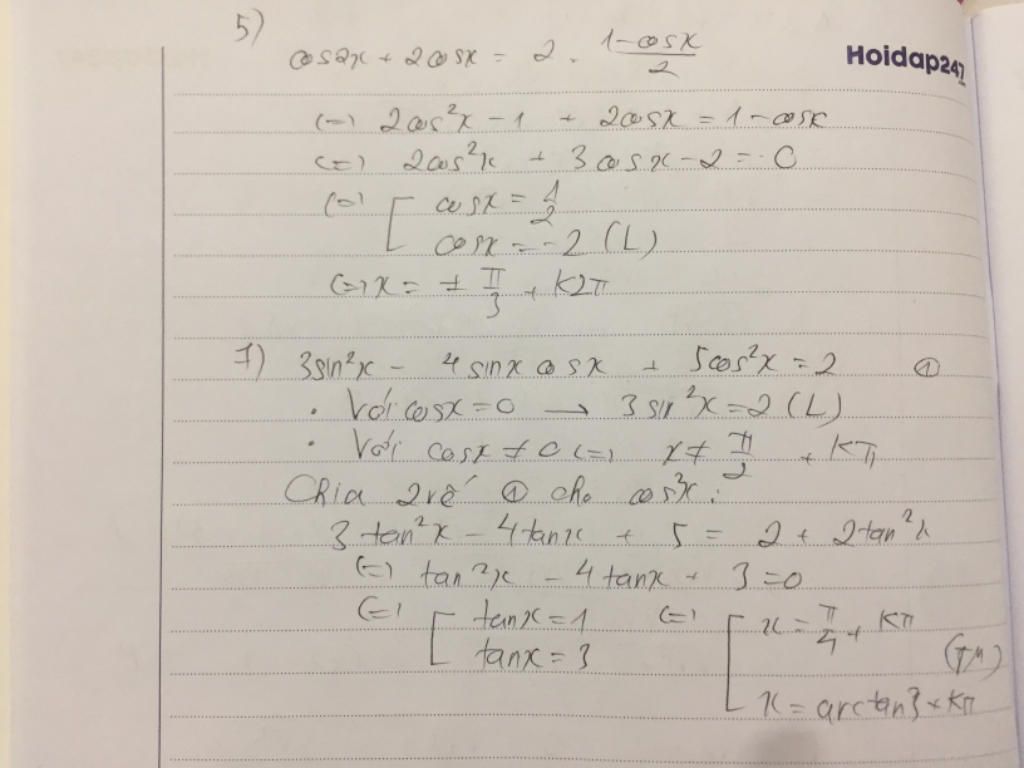 5)
cos2x + 2cosx = 2 . (1-cosx)/2
Hoidap247
(=) 2cos²x - 1 + 2cosx = 1 - cosx
(=) 2cos²x + 3cosx - 2 = 0
(=) [ cosx = 1/2
cosx = -2 (L)
(=) x = ± π/3 + K2π
7) 3sin²x - 4sinxcosx + 5cos²x = 2 ①
. Với cosx = 0 → 3sin²x = 2 (L)
. Với cosx ≠ 0 (=) x ≠ π/2 + Kπ
Chia 2 vế ① cho cos²x:
3tan²x - 4tanx + 5 = 2 + 2tan²x
(=) tan²x - 4tanx + 3 = 0
(=) [ tanx = 1 (=) [ x = π/4 + Kπ
tanx = 3 (TM)
x = arctan3 + Kπ